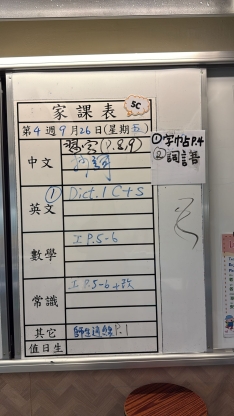 SC
家課表
第4週9月26日(星期五)
中文
習字(P.8,9)
①字帖P.4
②詞語
英文
① Dict.1 C+S
數學
工P.5-6
常識
工P.5-6+改
其它
師生通經P.1
值日生